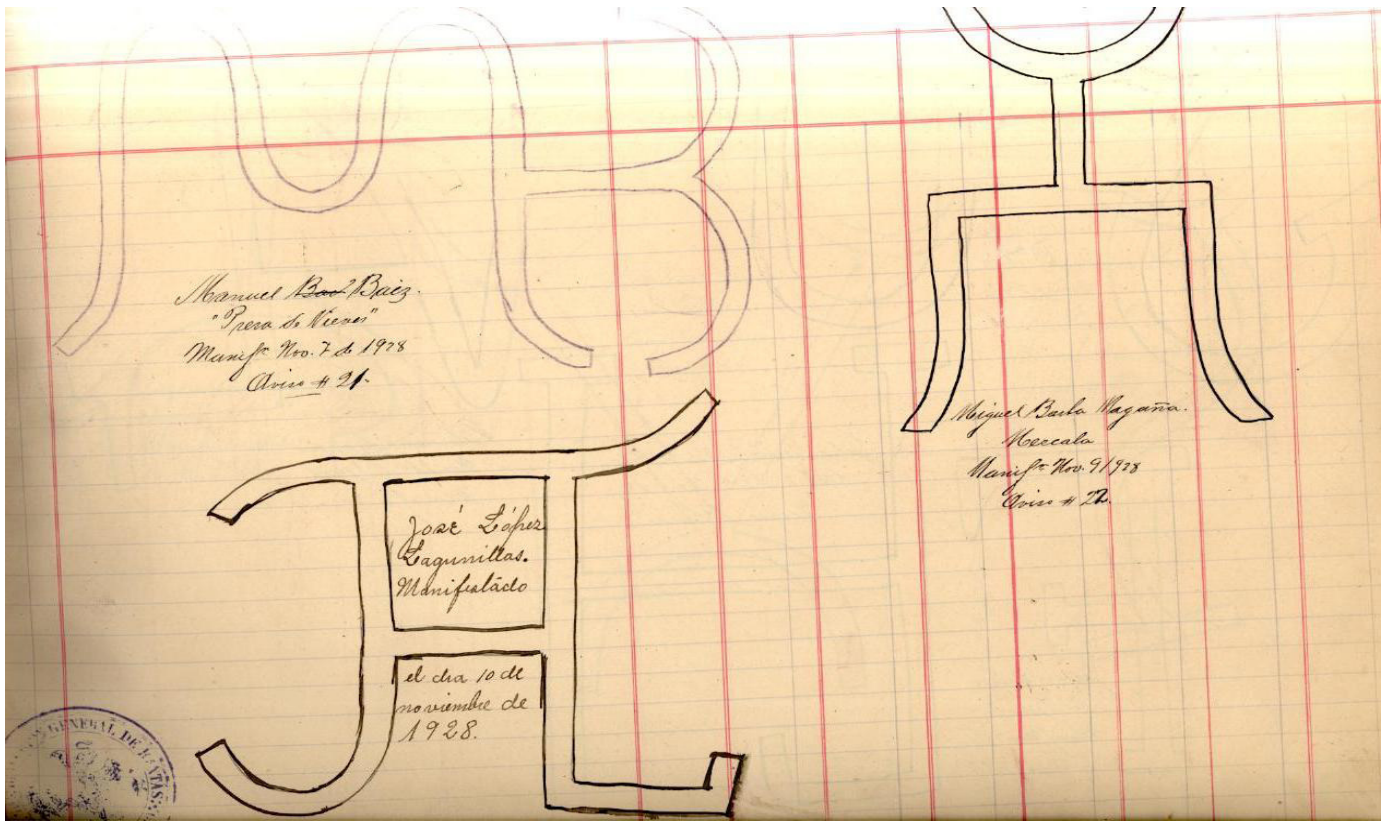 Manuel Baez.
"Presa de Nieves"
Manifto Nov. 7 de 1928
Aviso # 21.
Miguel Magaña.
Mezcala
Manifto Nov. 9/928
Aviso # 22.
José López
Lagunillas.
Manifestádo
el dia 10 de
noviembre de
1928.
GENERAL DE RENTAS